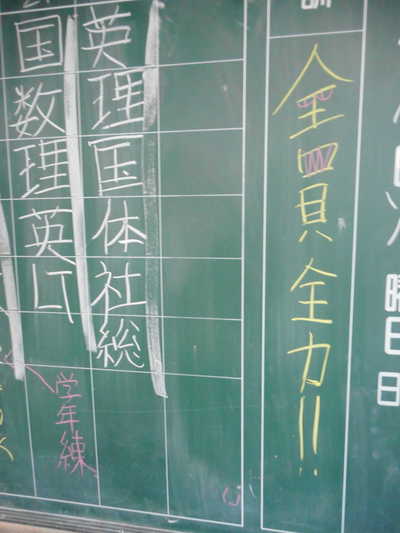 曜日
日
訓
全員全力!!
英理国体社総
国数理英LT
学年練